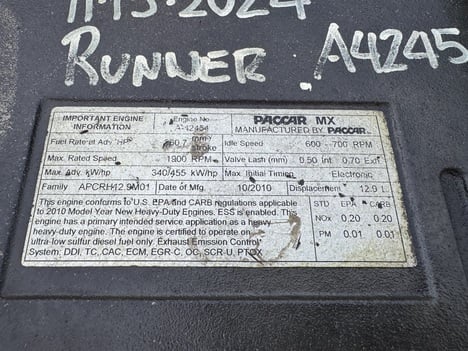 2024
RUNNER A4245
IMPORTANT ENGINE INFORMATION
Engine No
PACCAR MX
MANUFACTURED BY PACCAR
Fuel Rate at Adv. HP mm³/stroke
Idle Speed 600 - 700 RPM
Max. Rated Speed 1900 RPM
Valve Lash (mm) 0.50 Int 0.70 Exh
Max. Adv. kW/hp 340/455 kW/hp
Max. Initial Timing Electronic
Family APCRH12.9M01
Date of Mfg. 10/2010
Displacement 12.9 L
This engine conforms to U.S. EPA and CARB regulations applicable
to 2010 Model Year New Heavy-Duty Engines. ESS is enabled. This
engine has a primary intended service application as a heavy
heavy-duty engine. The engine is certified to operate on
ultra-low sulfur diesel fuel only. Exhaust Emission Control
System: DDI, TC, CAC, ECM, EGR-C, OC, SCR-U, PTOX
STD EPA CARB
NOx 0.20 0.20
PM 0.01 0.01